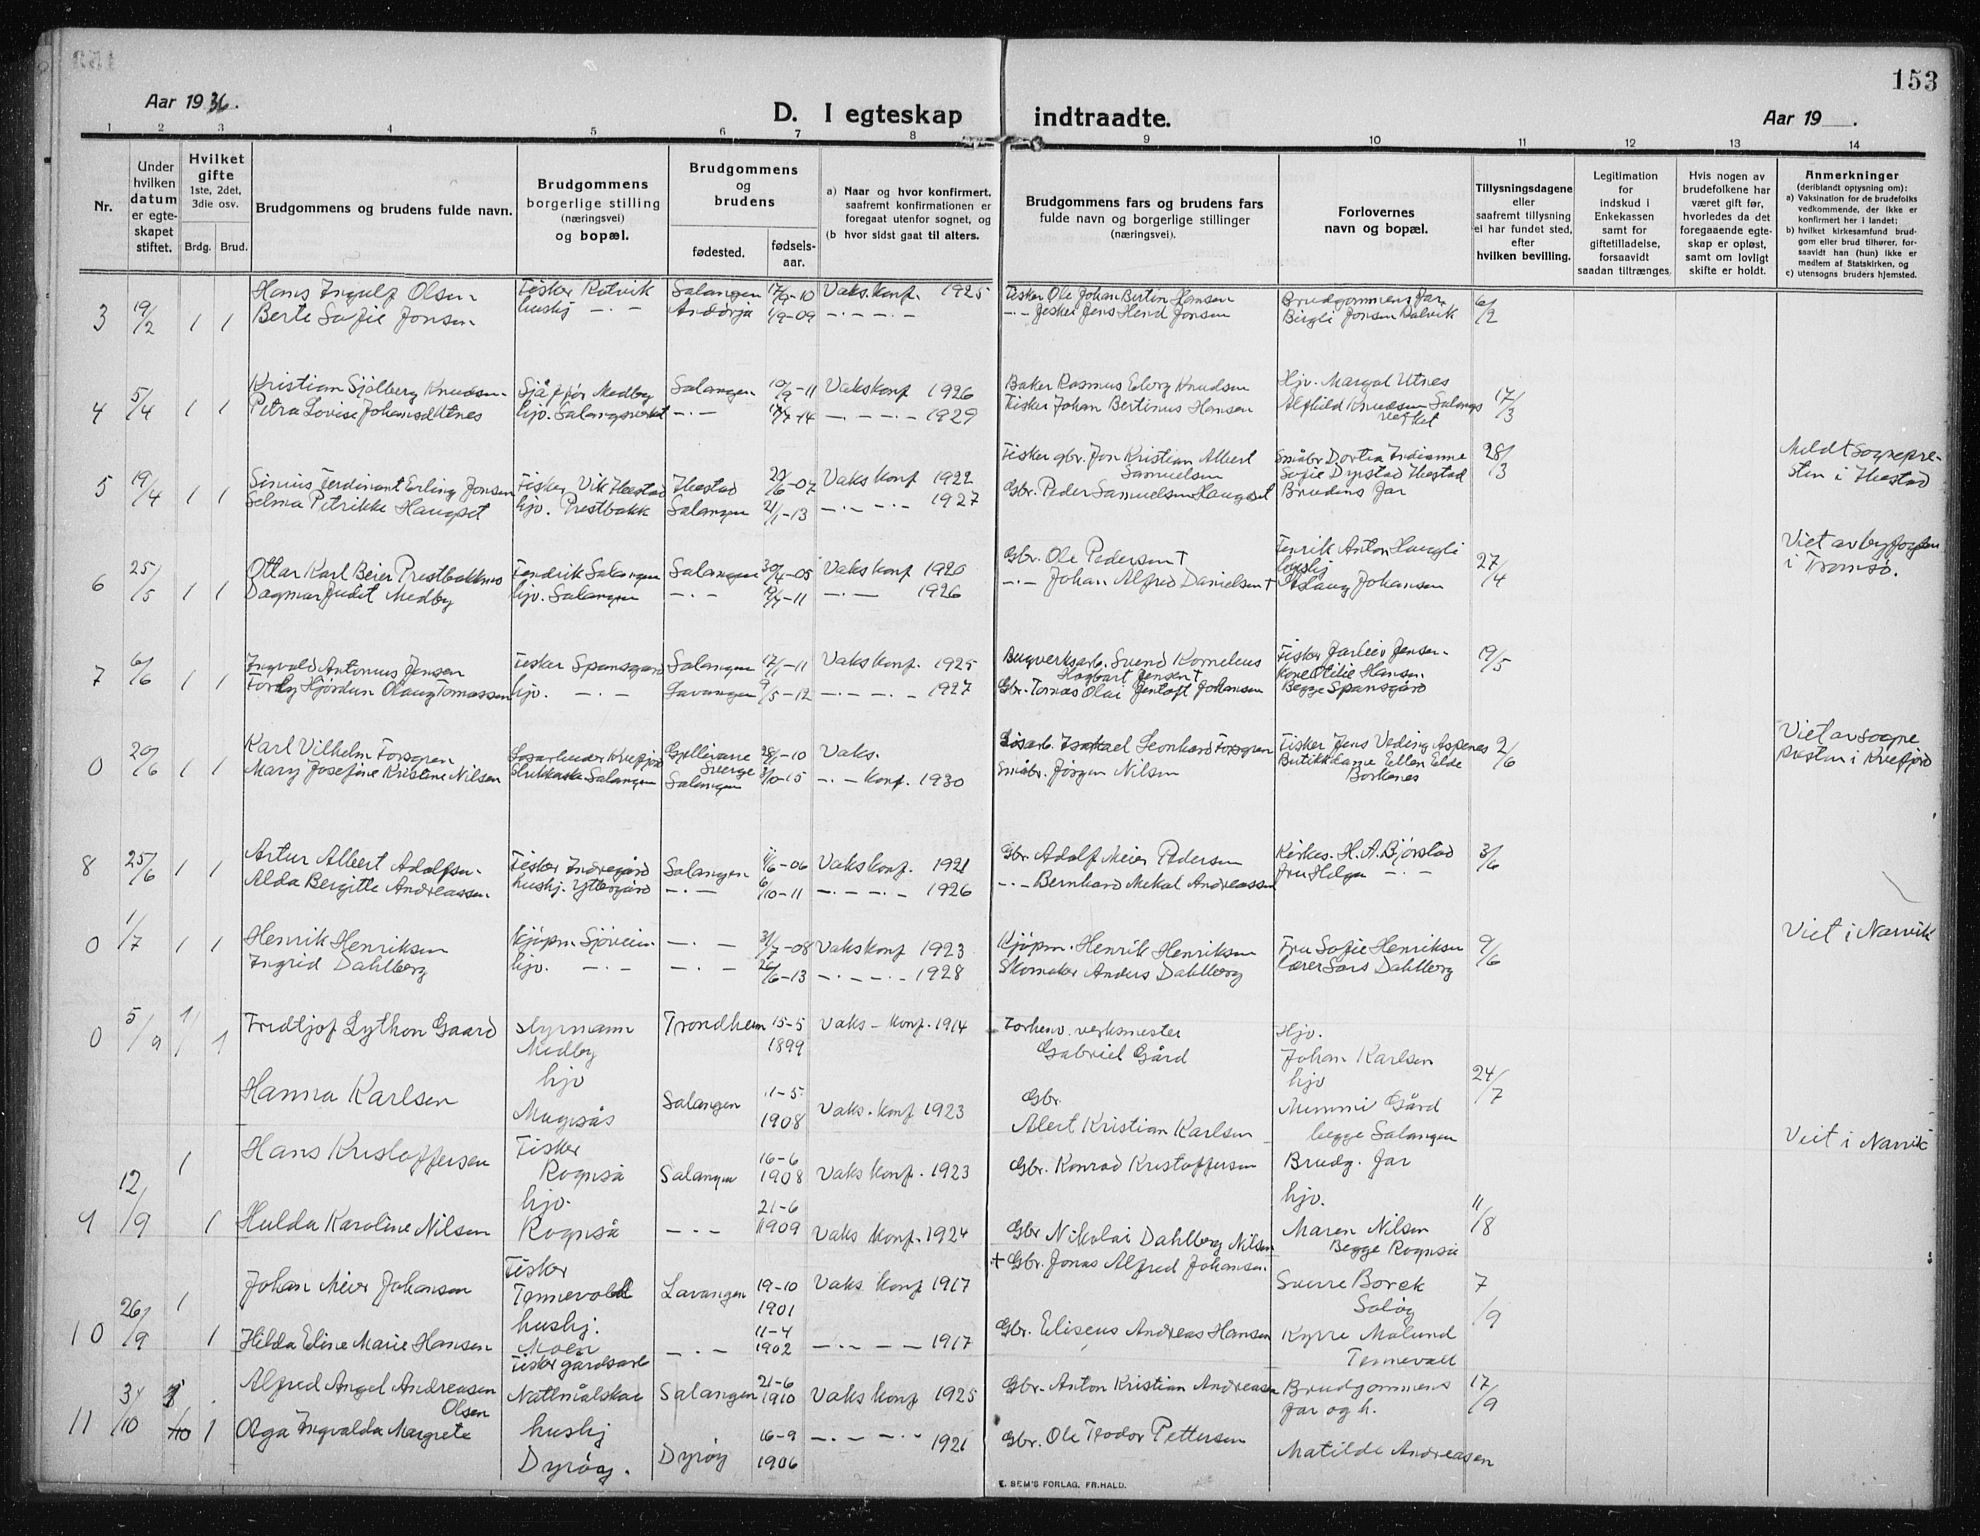 153
Aar 1936.
D. I egteskap indtraadte.
Aar 19 .
1 2 3 4 5 6 7 8 9 10 11 12 13 14
Nr.
Under hvilken datum er egteskapet stiftet.
Hvilket gifte 1ste, 2det, 3die osv.
Brdg. Brud.
Brudgommens og brudens fulde navn.
Brudgommens borgerlige stilling (næringsvei) og bopæl.
Brudgommens og brudens
fødested. fødselsaar.
a) Naar og hvor konfirmert, saafremt konfirmationen er foregaat utenfor sognet, og
(b hvor sidst gaat til alters.
Brudgommens fars og brudens fars fulde navn og borgerlige stillinger (næringsvei).
Forlovernes navn og bopæl.
Tillysningsdagene eller saafremt tillysning ei har fundet sted, efter hvilken bevilling.
Legitimation for indskud i Enkekassen samt for giftetilladelse, forsaavidt saadan tiltrænges.
Hvis nogen av brudefolkene har været gift før, hvorledes da det foregaaende egteskap er opløst, samt om lovligt skifte er holdt.
Anmerkninger (deriblandt oplysning om):
a) Vaksination for de brudefolks vedkommende, der ikke er konfirmert her i landet;
b) hvilket kirkesamfund brudgom eller brud tilhører, forsaavidt han (hun) ikke er medlem av Statskirken, og
c) utensogns bruders hjemsted.
Hans Ingulf Olsen Fisker Rotvik Salangen 17/9-10 Vaks. konf. 1925 Fisker Ole Johan Bertin Hansen Brudgommens far 6/2
3 19/2 1 1 Berte Sofie Jonsen hushj -.- Andørja 1/9-09 -.-.-.- -.- Fisker Jens Hend Jonsen Birgli Jonsen Rotvik
Kristian Sjølberg Knudsen Sjåffør Medby Salangen 10/9-11 Vaks konf 1926 Baker Rasmus Eborg Knudsen Hjv. Margot Utnes 17/3
4 5/4 1 1 Petra Lovise Johansd Utnes hjv. Salangsverket -.- -14 -.-.-.- 1929 Fisker Johan Bertinus Hansen Alfhild Knudsen Salangsverket
Fisker gbr. Jon Kristian Albert Samuelsen Småbr Dortea Indianne 28/3 Meldt sognepresten i Ibestad
5 19/4 1 1 Sinius Ferdinant Erling Jonsen Fisker Vik Ibestad Ibestad 20/6-07 Vaks konf 1922 Sofie Dyrstad Ibestad
Selma Petrikke Haugset hjv. Prestbakk Salangen 21/1-13 -.-.-.- 1927 Gbr. Peder Samuelsen Haugset Brudens far
6 25/5 1 1 Ottar Karl Beier Prestbakkmo Fendrik Salangen Salangen 30/4-05 Vaks konf 1920 Gbr. Ole Pedersen † Fenrik Anton Haugli 27/4 Viet av byfogden i Tromsø.
Dagmar Judit Medby hjv. Salangen -.- -11 -.-- 1926 -.- Johan Alfred Danielsen † Johansen
7 6/6 1 1 Ingvald Antonius Jensen Fisker Spansgård Salangen 17/1-11 Vaks konf. 1925 Bergverksarb. Svend Kornelius Hagbart Jensen † Fisker Jarleiv Jensen 19/5
Hjørdun Olaug Tomassen hjv. -.- Lavangen 9/5-12 -.-.-.- 1927 Gbr. Tomas Olai Jentoft Johansen Kone Otilie Hansen Begge Spansgård
0 20/6 1 1 Karl Vilhelm Forsgren Kvefjord Gellivare Sverge 28/1-10 Vaks. Leonhard Forsgren Fisker Jens Veding Aspenes 2/6 Viet av sogneprsten i Kvefjord
Mary Josefine Kristine Nilsen Salangen Salangen 3/10-15 -.- Konf. 1930 Småbr. Jørgen Nilsen Butikkdame Ellen Elde Borkenes
8 25/6 1 1 Artur Albert Adolfsen Fisker Indregård Salangen /6-06 Vaks konf. 1921 Gbr. Adolf Meier Pedersen Kirkes. H.A. Bjørstad 3/6
Alda Bergitte Andreassen hushj. Yttergård -.- 6/10-11 -.-.-.- 1926 -.- Bernhard Mekal Andreassen Fru Helga -.-
0 1/7 1 1 Henrik Henriksen Kjøpm. Sjøvein -.- 31/7-08 Vaks konf 1923 Kjøpm. Henrik Henriksen Fru Sofie Henriksen 9/6 Viet i Narvik
Ingrid Dahlberg hjv. -.- -.- 26/6-13 -.-.-.- 1928 Skomaker Anders Dahlberg Lærer Lars Dahlberg
0 5/9 1 1 Fridtjof Lython Gaard styrmann Medby Trondheim 15-5 1899 Vaks - konf. 1914 Forhenv. verksmester Gabriel Gård Hjv. Johan Karlsen 24/7
Hanna Karlsen hjv Salangen 1-5 1908 Vaks. konf 1923 Gbr. Albert Kristian Karlsen hjv Mimmi Gård begge Salangen Veit i Narvik
9 12/9 1 Hans Kristoffersen Fisker Rognså Salangen 16-6 1908 Vaks konf. 1923 Gbr. Konrad Kristoffersen Brudg. far 11/8
1 Hulda Karoline Nilsen hjv. Rognså -.- 21-6 1909 Vaks konf. 1924 Gbr Nikolai Dahlberg Nilsen hjv. Maren Nilsen Begge Rognså
10 26/9 1 Johan Meier Johansen Fisker Tennevold Lavangen 19-10 1901 Vaks konf 1917 + Gbr. Jonas Alfred Johansen. Sverre Borck Saløy 7/9
1 Hilda Eline Marie Hansen hushj. Moen -.- 11-4 1902 -.-.- 1917 Gbr. Eliseus Andreas Hansen Kyrre Mølund Tennevoll
11 3/10 Alfred Angel Andreasen Fisker gårdsarb Nattmålsham Salangen 21-6 1910 Vaks konf 1925 Gbr. Anton Kristian Andreasen Brudgommens far og h. 17/9
1 Aga Ingvalda Margrete Olsen hushj Dyrøy. Dyrøy 16-9 1906 -.-.-.- 1921 Gbr. Ole Teodor Pettersen Matilde Andreasen
E. SEM'S FORLAG, FR.HALD.